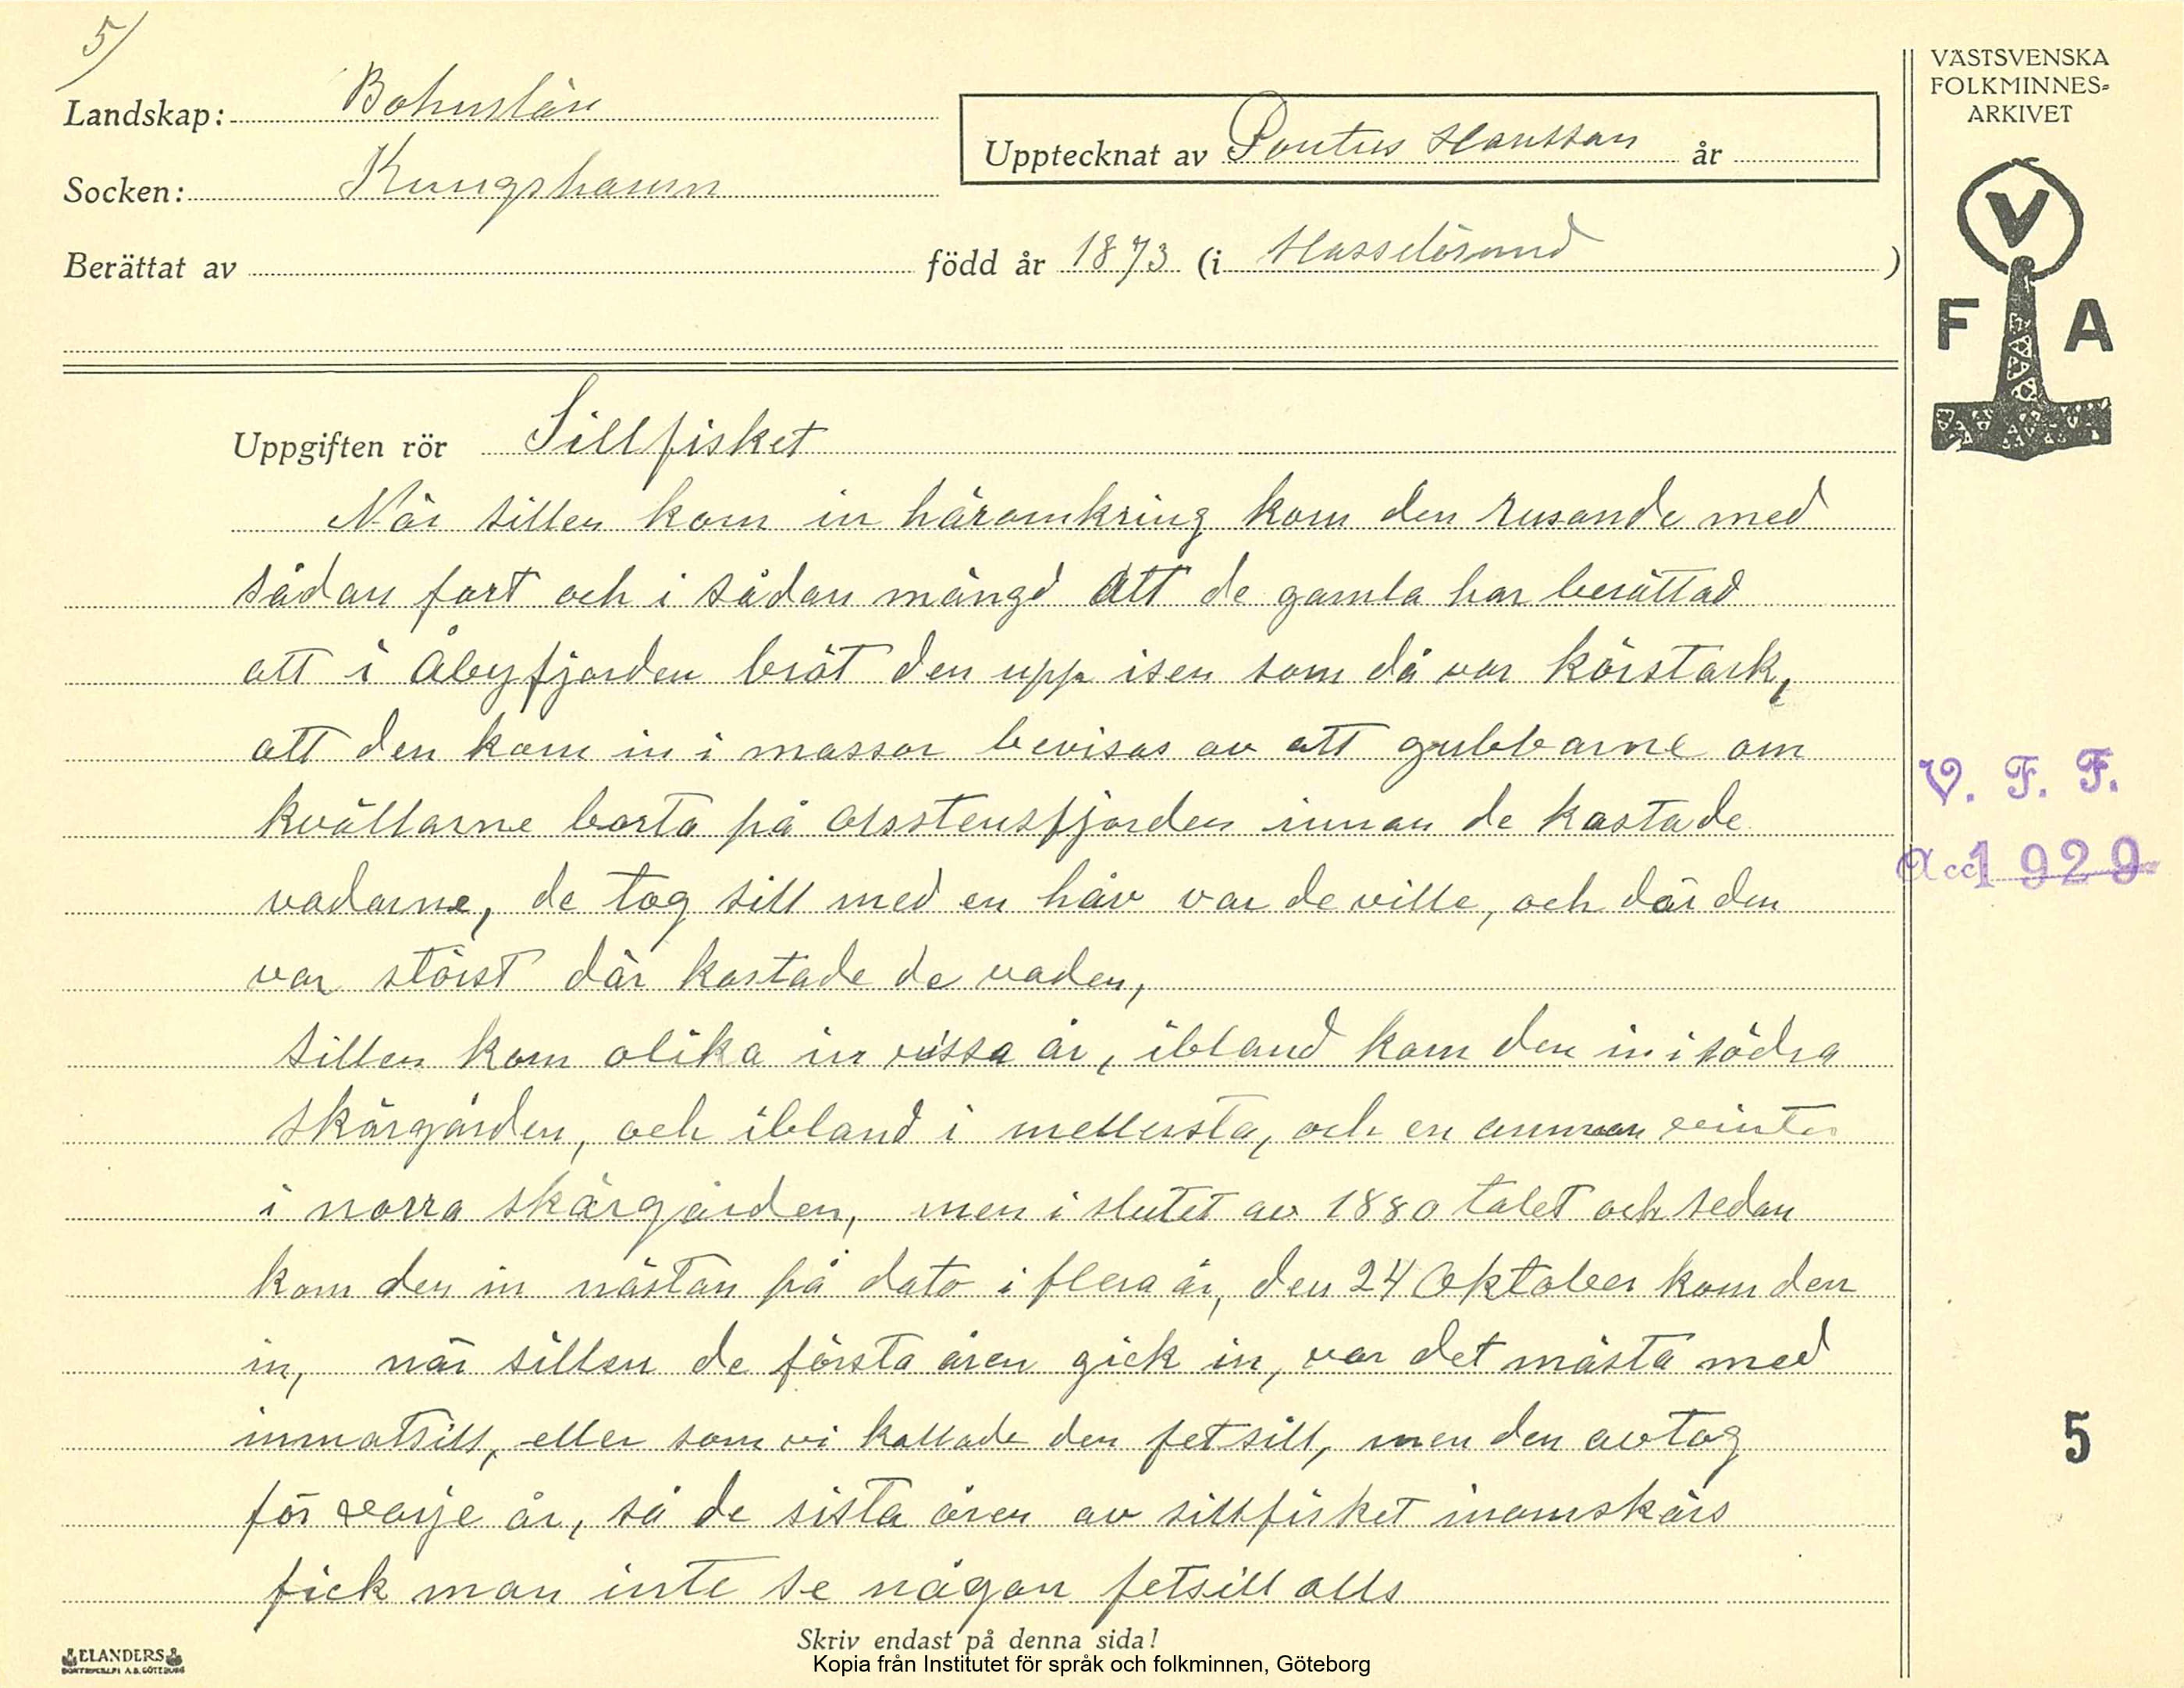 5/
VÄSTSVENSKA
FOLKMINNES-
ARKIVET
Landskap: Bohuslän
Upptecknat av Pontus Hansson år
Socken: Kungshamn
Berättat av född år 1873 (i Hasselösund )
V
F A
Uppgiften rör Sillfisket
När sillen kom in häromkring kom den rusande med
sådan fart och i sådan mängd att de gamla har berättad
att i Åbyfjorden bröt den upp isen som då var körstark,
att den kom in i massor bevisas av att gubbarne om
kvällarne borta på Alsstensfjorden innan de kastade
vadarne, de tog sill med en håv var de ville, och där den
var störst där kastade de vaden,
sillen kom olika in vissa år, ibland kom den in i södra
skärgården, och ibland i mellersta, och en annan vinter
i norra skärgården, men i slutet av 1880 talet och sedan
kom den in nästan på dato i flera år, den 24 Oktober kom den
in, när sillen de första åren gick in, var det mästa med
inmatsill, eller som vi kallade den fetsill, men den avtog
för varje år, så de sista åren av sillfisket inomskärs
fick man inte se någon fetsill alls
V. F. F.
Acc 1929
5
ELANDERS
BOKTRYCKERI A.B. GÖTEBORG
Skriv endast på denna sida!
Kopia från Institutet för språk och folkminnen, Göteborg